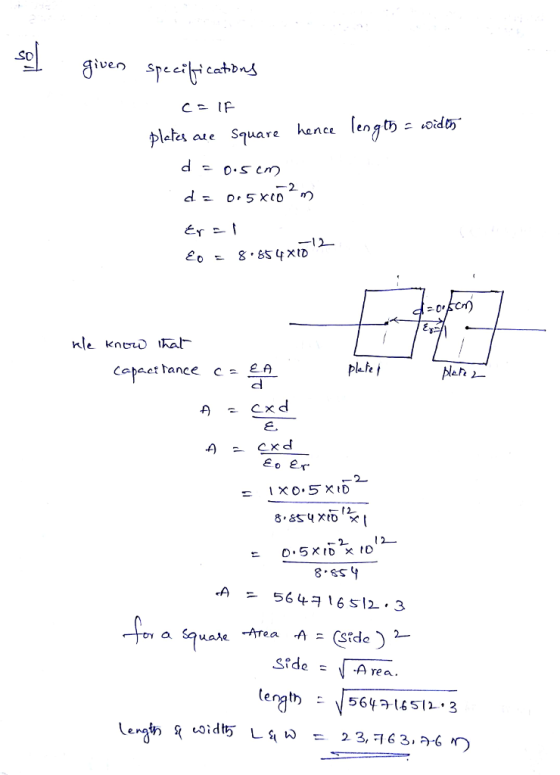 Sol
given specifications
C = 1F
plates are square hence length = width
d = 0.5 cm
d = 0.5×10⁻² m
εr = 1
ε0 = 8.854×10⁻¹²
d=0.5cm
εr=1
plate 1
plate 2
We know that
capacitance C = εA/d
A = C×d/ε
A = C×d/ε0 εr
= 1×0.5×10⁻²/8.854×10⁻¹²×1
= 0.5×10⁻²×10¹²/8.854
A = 564716512.3
for a square Area A = (side)²
side = √Area.
length = √564716512.3
length & width L & W = 23,763.76 m